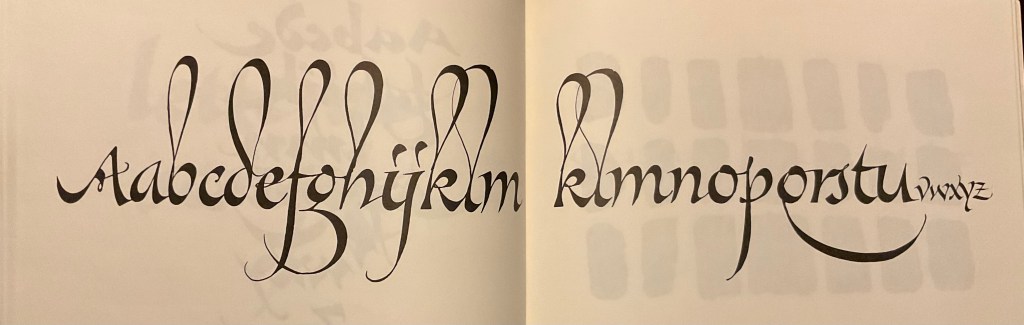 Aabcdefghijklm
klmnopqrstuvwxyz